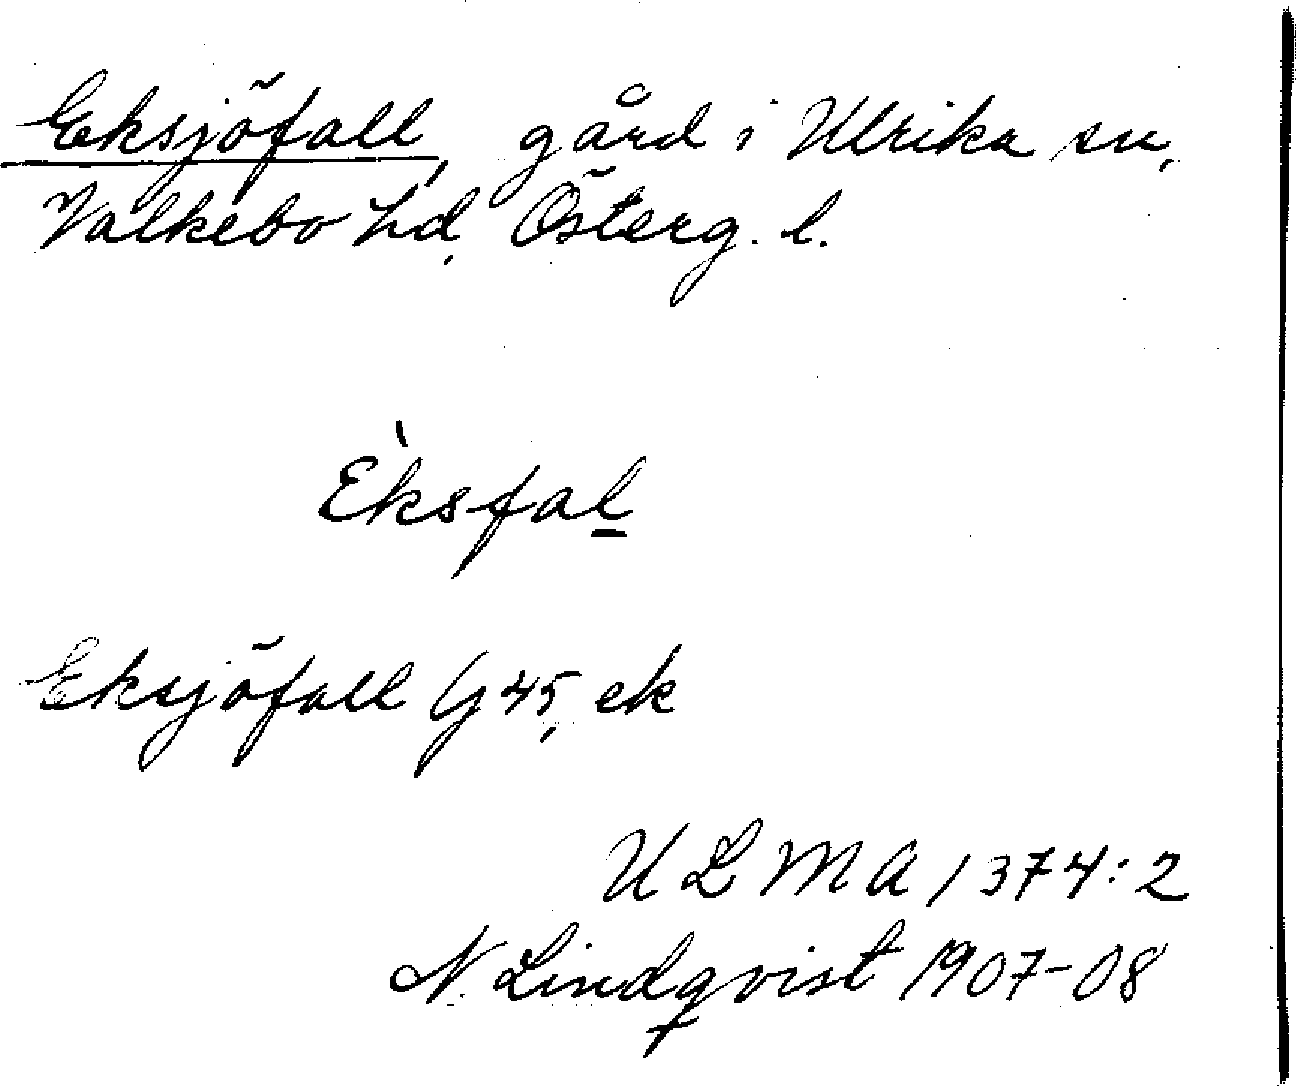 Eksjöfall, gård i Ulrika sn,
Valkebo hd, Österg. l.
Èksfal
Eksjöfall G 45, ek
ULMA 1374:2
N. Lindqvist 1907-08